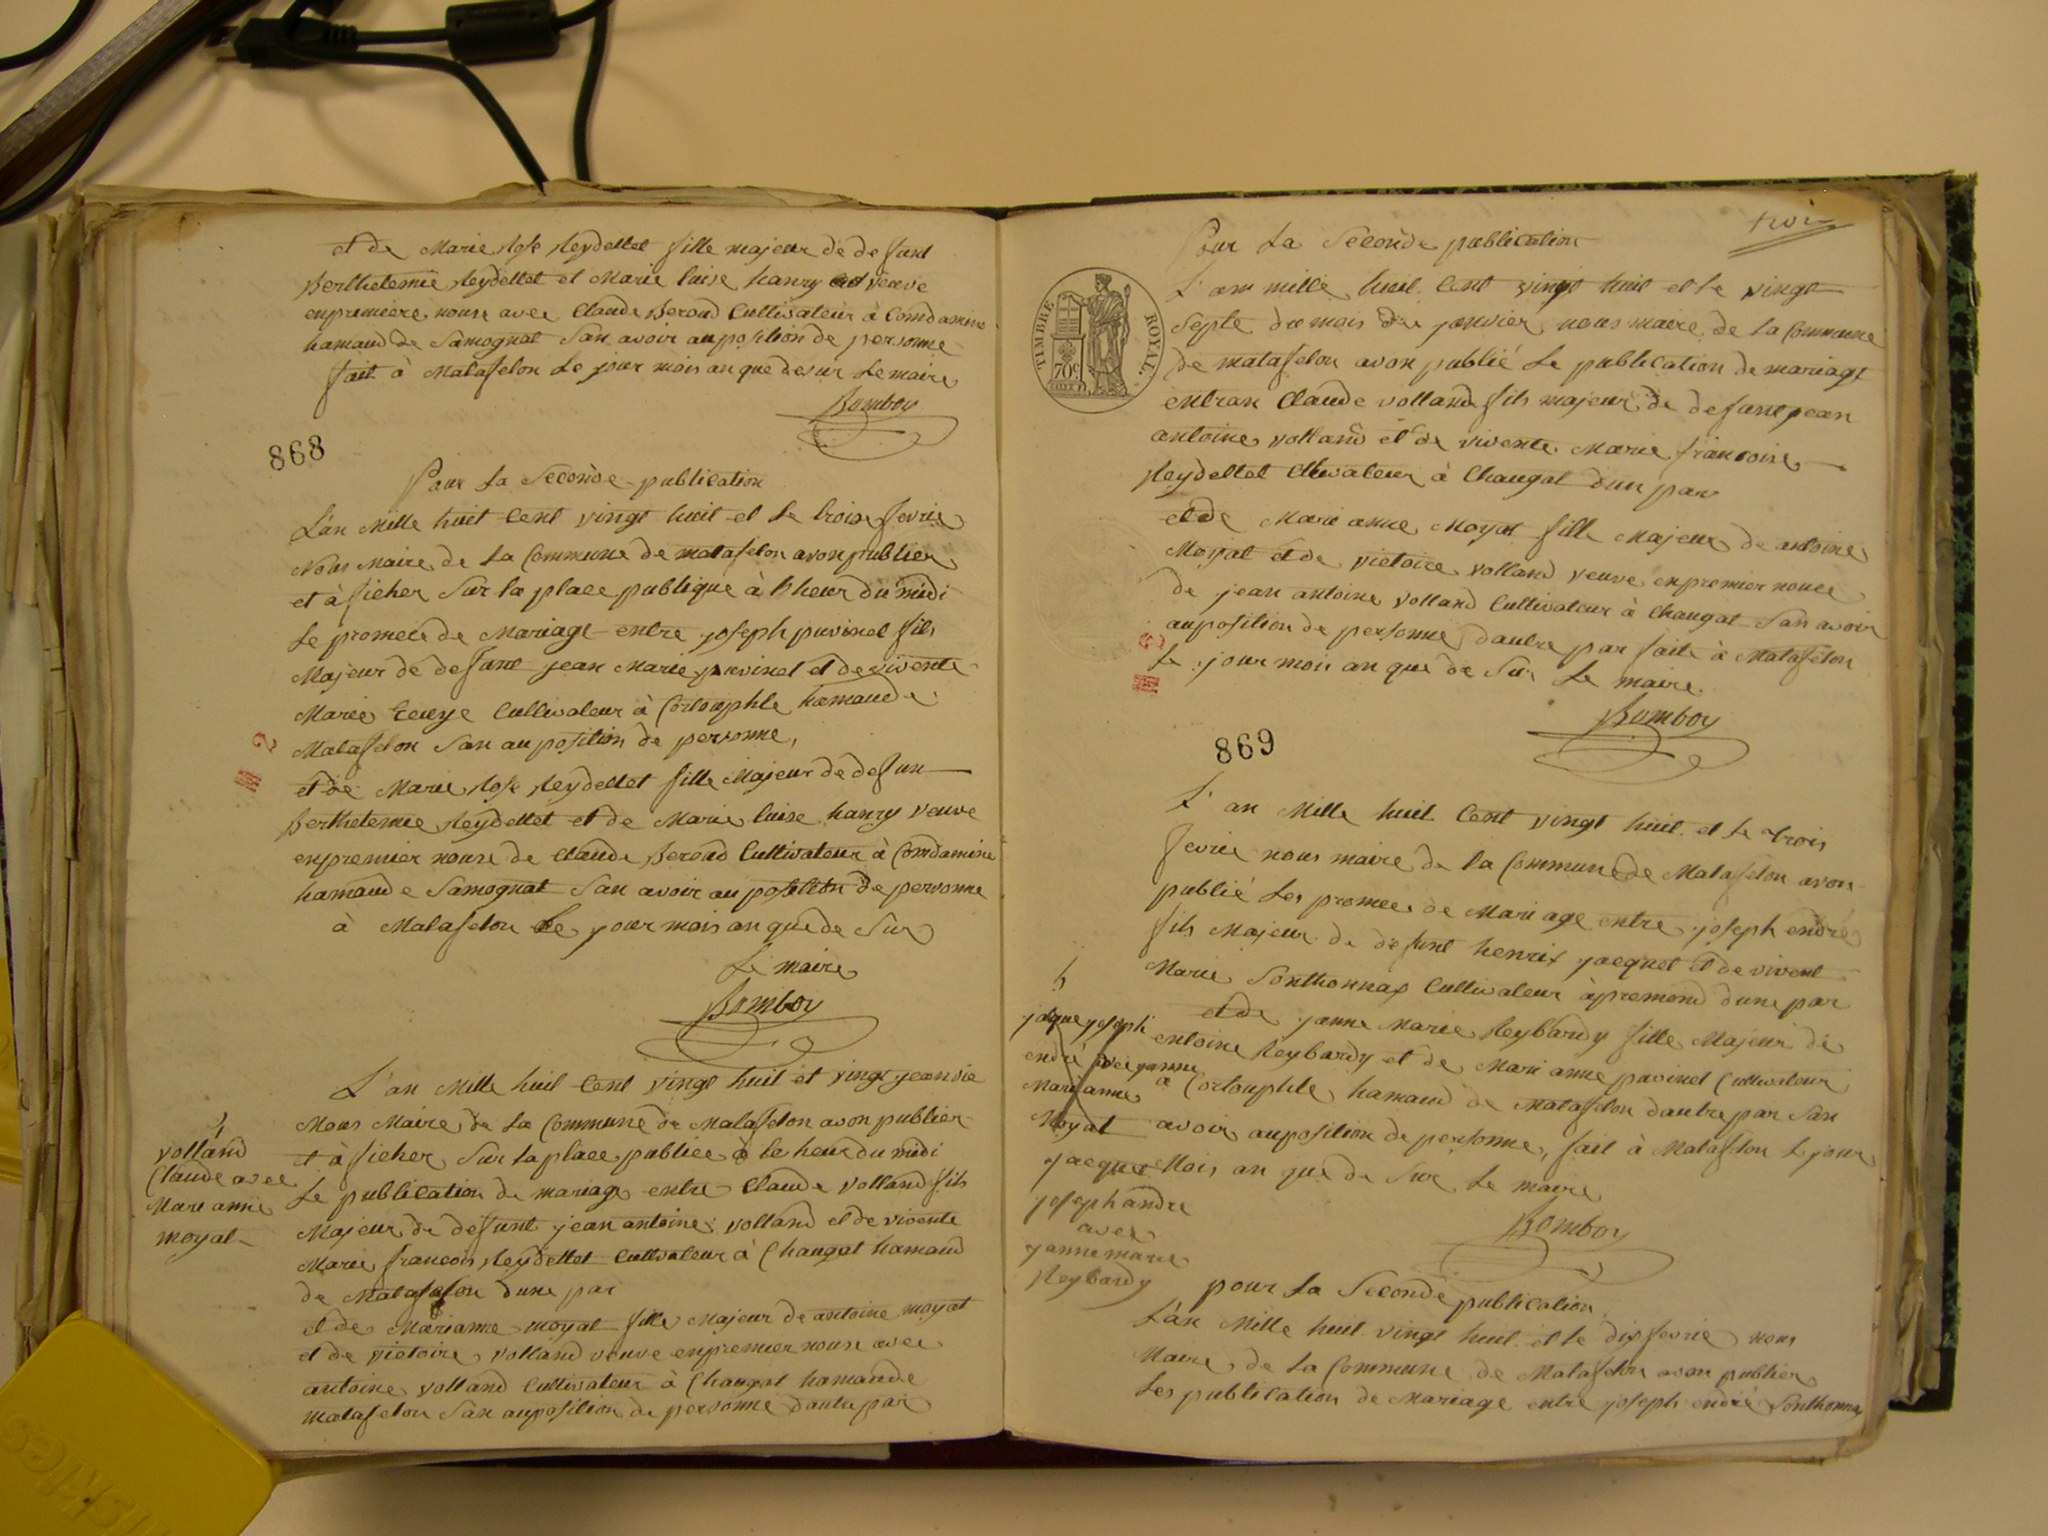 et de Marie Rose Reydellet fille majeur de defunt
Berthelemie Reydellet et Marie luise hanry veuve
enpremiere nouse avec Claude Beroud Cultivateur à Comdamine
hamaud de Samognat San avoir auposition de personne
fait à Matafelon Le jour mois an que desur Le maire
Bomboy
868
Pour La Seconde publication
L'an Mille huit Cent vingt huit et le trois fevrie
Nous Maire de La Commune de matafelon avon publier
et à ficher Sur la place publique à lheur du midi
Le promece de Mariage entre joseph puvinel fils
Majeur de defunt jean Marie puvinel et de vivente
Marie Cultivateur à Corlouphle hamaude
Matafelon San auposition de personne,
et de Marie Rose Reydellet fille Majeur de defun
Berthelemie Reydellet et de Marie luise hanry veuve
enpremier nouse de Claude Beroud Cultivateur à Comdamine
hamaude Samognat San avoir auposition de personne
à Matafelon Le jour mois an que de Sur
Le maire
Bomboy
L'an Mille huit Cent vingt huit et vingt jeanvie
Nous Maire de La Commune de Matafelon avon publier
et à ficher Sur la place publiee à le heur du midi
Le publication de mariage entre Claude volland fils
Majeur de defunt jean antoine volland et de vivente
Marie francois Reydellet Cultivateur à Changat hamaud
de Matafelon dune par
et de Marianne moyat fille Majeur de antoine moyat
et de victoire volland veuve enpremier nouse avec
antoine volland Cultivateur à Changat hamaude
matafelon San auposition de personne dautre par
volland
Claude avec
Mari anne
moyat
troi
Pour La Seconde publication
TIMBRE ROYAL
70c
L'an mille huit Cent vingt huit et le vingt
Septe du mois du janvier nous maire de la Commune
de matafelon avon publié Le publication de mariage
entran Claude volland fils majeur de defunt jean
antoine volland et de vivente Marie francoise
Reydellet Cltivateur à Changat dun par
et de Mari anne Moyat fille Majeur de antoine
Moyat et de victoire volland veuve enpremier nouce
de jean antoine volland Cultivateur à Changat San avoir
auposition de personne dautre par faite à Matafelon
Le jour mois an que de Sur Le maire
Bomboy
869
L'an Mille huit Cent vingt huit et Le trois
fevrie nous maire de la Commune de Matafelon avon
publié Les promece de Mariage entre joseph endré
fils Majeur de defunt henrix jacquet et de vivent
Marie Sonthonnax Cultivateur àpremond dune par
et de janne Marie Reybardy fille Majeur de
entoine Reybardy et de Mari anne puvinel Cultivateur
à Corlouphle hamaud de Matafelon dautre par San
avoir auposition de personne, fait à Matafelon Le jour
Mois an que de Sur Le maire
Bomboy
jaque joseph
endré avec janne
Mari anne
Moyat
jacquet
joseph andre
avec
janne marie
Reybardy
pour La Seconde publication
L'an Mille huit vingt huit et le dix fevrie nous
Maire de La Commune de Matafelon avon publier
Les publication de Mariage entre joseph endré Sonthonna